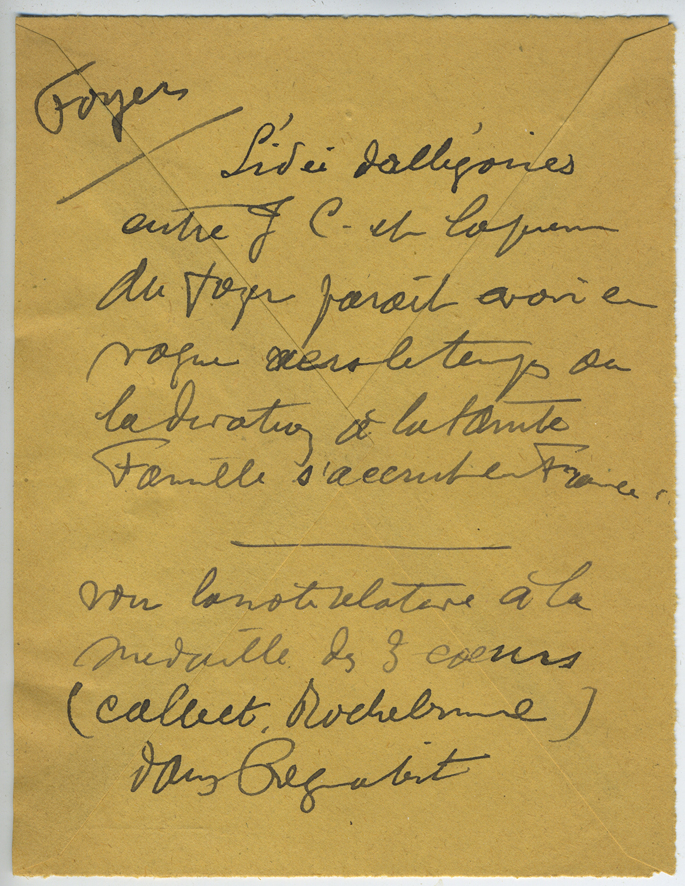 Foyers
L'idée d'allégories
entre J C - et la pierre
du Foyer paraît avoir en
vogue vers le temps où
la dévotion à la Sainte
Famille s'accrut en France.
voir la note relative à la
médaille des 3 coeurs
(collect. Rochebrune)
dans Regnabit